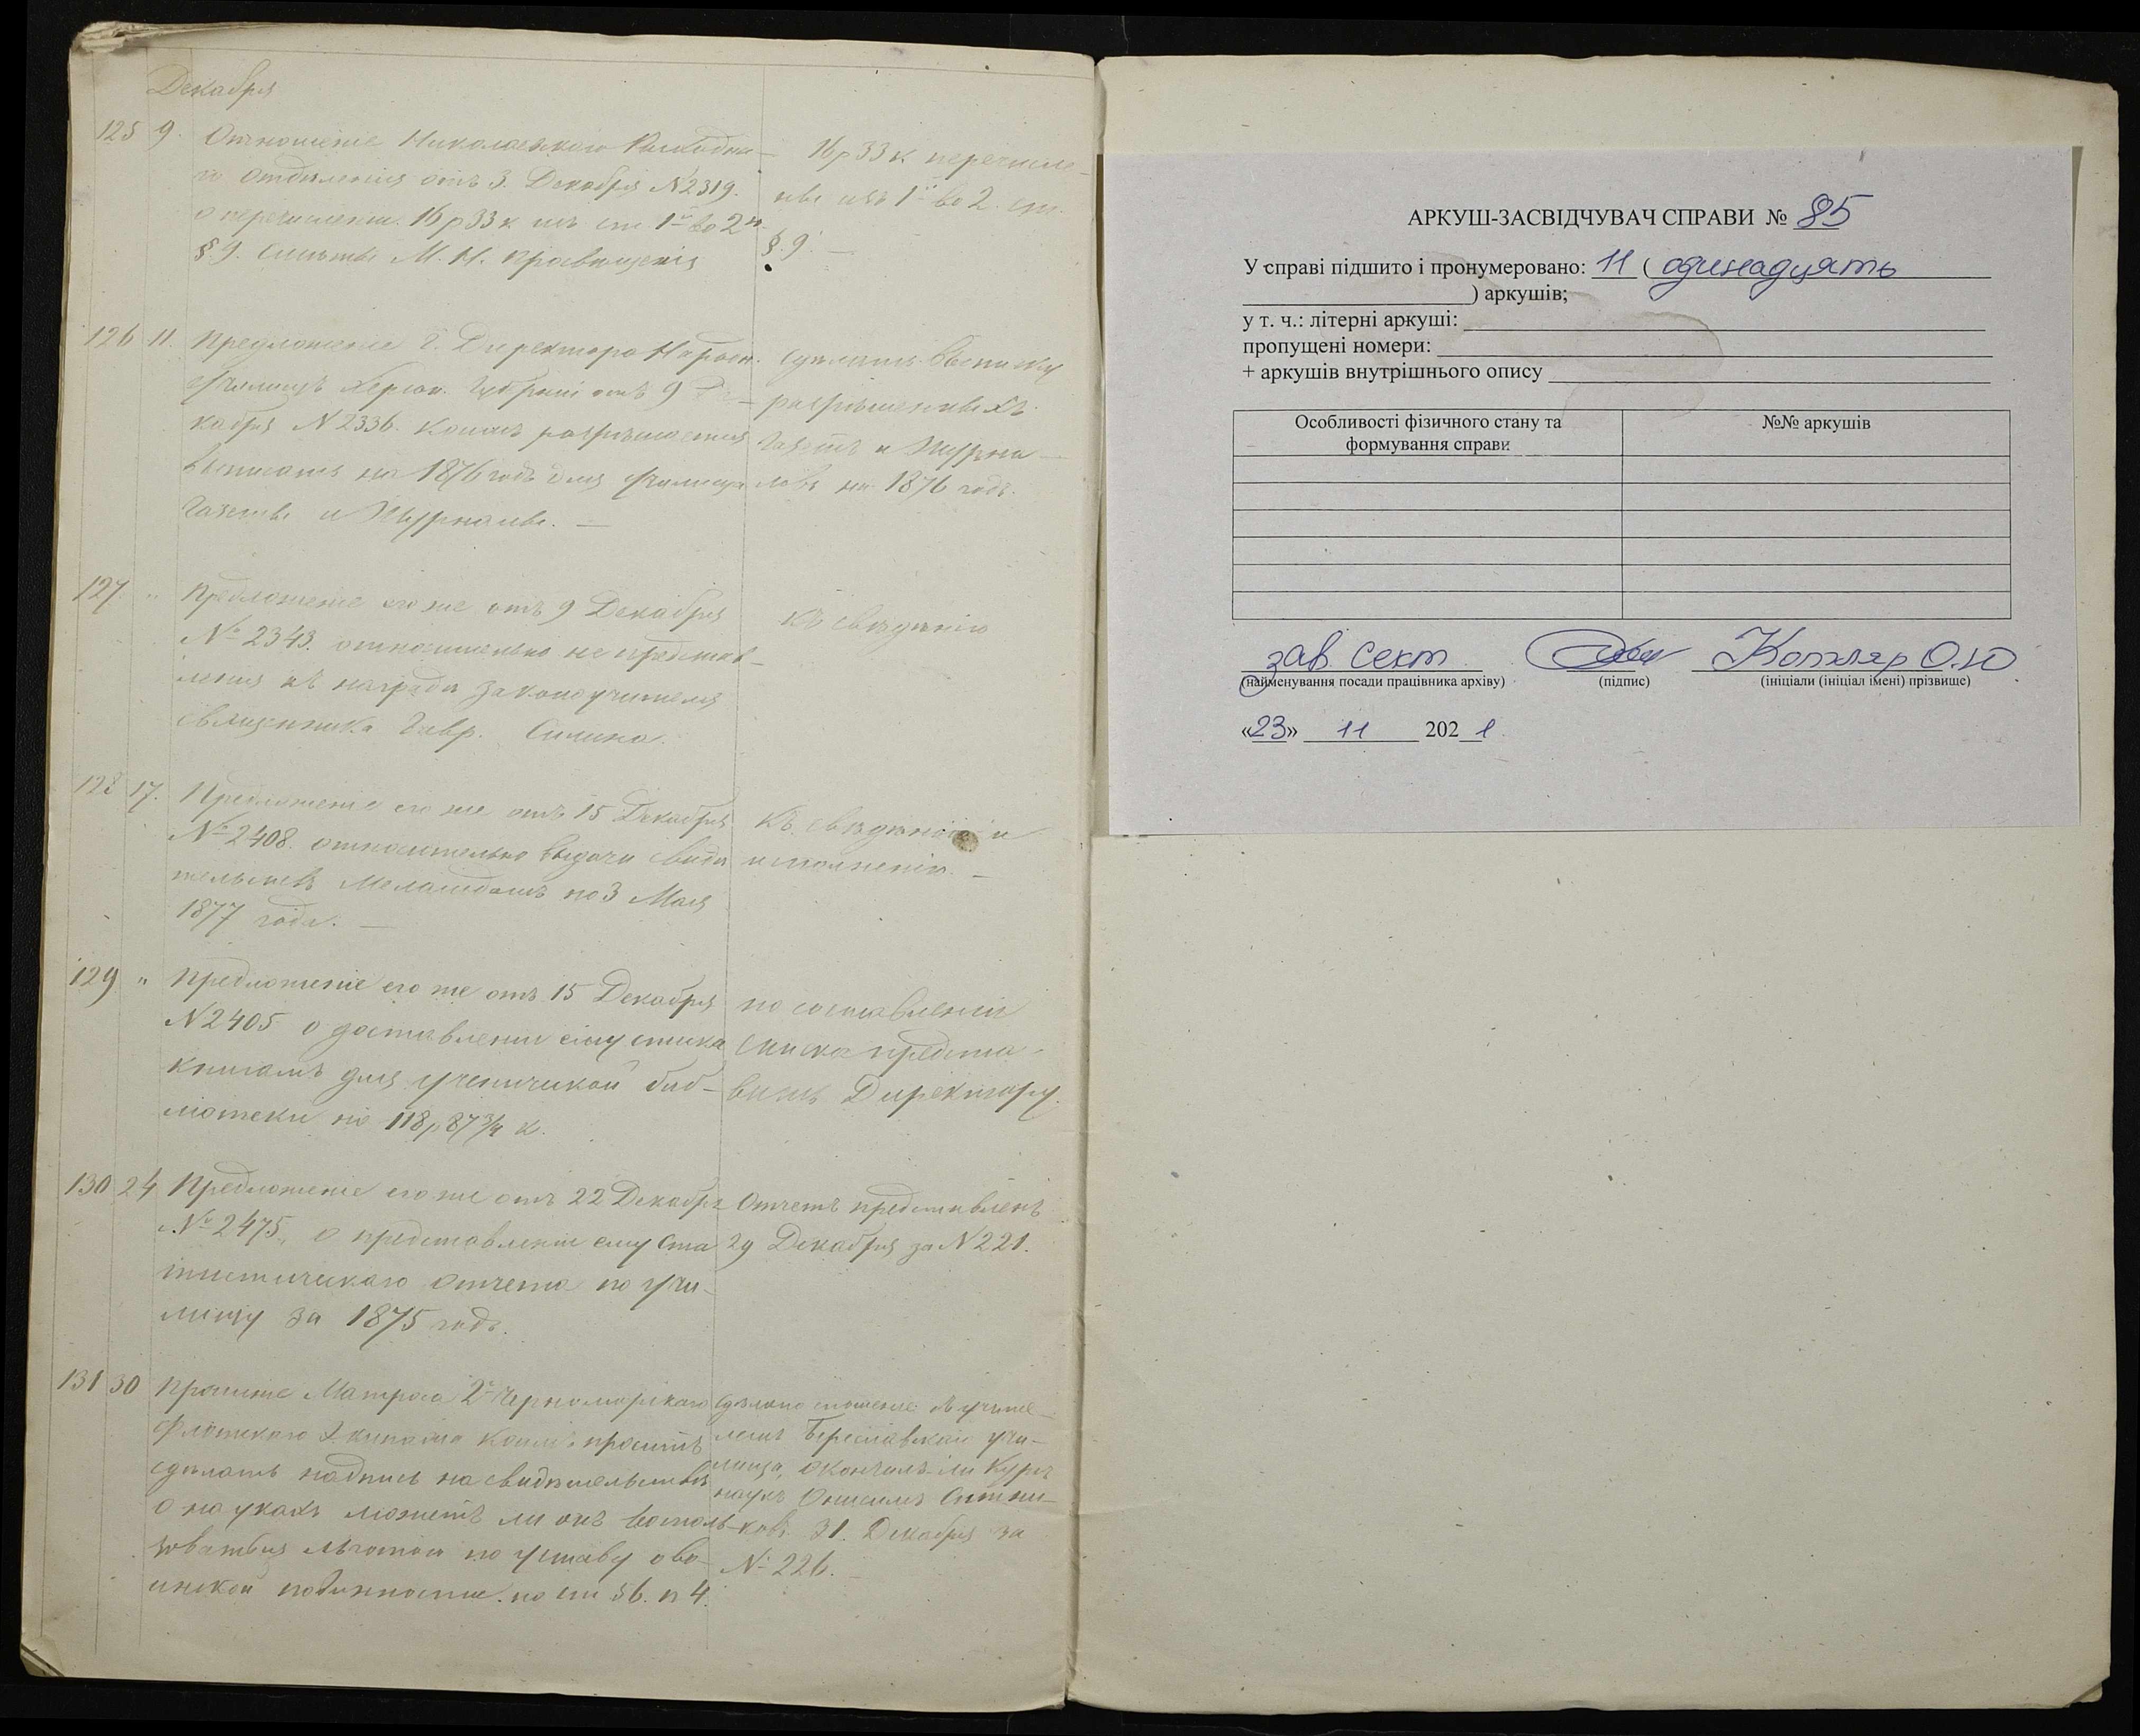 Декабря
125 9. Отношеніе Николаевскаго Расходна-
го Отделенія отъ 3. Декабря №2319.
о перечислении 16 р 33 к изъ ст. 1й во 2ю
§.9. Сметы М. Н. Просвещенія
16 р 33 к перечисле-
ны изъ 1й во 2. ст.
§.9. —
126 11. Предложеніе Г. Директора Народн.
Училищъ Херсон. Губерніи отъ 9 Де-
кабря №2336. коимъ разрешается
выписать на 1876 годъ для училища
Газеты и Журналы. —
Сделать выписку
разрешенныхъ
Газетъ и Журна-
ловъ на 1876 годъ.
127. " Предложеніе его же отъ 9 Декабря
№ 2343. относительно не представ-
ления къ награде Законоучителя
Священника Гавр. Силина.
Къ сведенію
128 17. Предложеніе его же отъ 15 Декабря
№ 2408. относительно выдачи свиде
тельствъ по 3 Мая
1877 года. —
Къ сведенію и
исполненію. —
129 " Предложеніе его же отъ 15 Декабря
№2405 о доставлении ему списка
книгамъ для ученической биб-
лiотеки на 118 р 87 3/4 к.
по составленіи
списка предста-
вить Директору.
130 24 Предложеніе его же отъ 22 Декабря
№ 2475., о представлении ему Ста
тистическаго Отчета по учи-
лищу за 1875 годъ.
Отчетъ представленъ
29 Декабря за №221.
131 30 Прошеніе Матроса 2го Черноморскаго
Флотскаго Экипажа коимъ проситъ
сделать надпись на свидетельстве
о наукахъ можетъ ли онъ восполь-
зоваться льготою по уставу о во-
инской повинности. по ст 56. п 4.
сделано сношеніе съ учите-
лемъ Бериславскаго учи-
лища, окончилъ-ли Курсъ
наукъ Онисимъ Ситни-
ковъ. 31. Декабря за
№ 226. —
АРКУШ-ЗАСВІДЧУВАЧ СПРАВИ № 85
У справі підшито і пронумеровано: 11 ( одинадцять
) аркушів;
у т. ч.: літерні аркуші:
пропущені номери:
+ аркушів внутрішнього опису
Особливості фізичного стану та
формування справи
№№ аркушів
зав. сект Котляр О.Ю
(найменування посади працівника архіву) (підпис) (ініціали (ініціал імені) прізвище)
«23» 11 2021